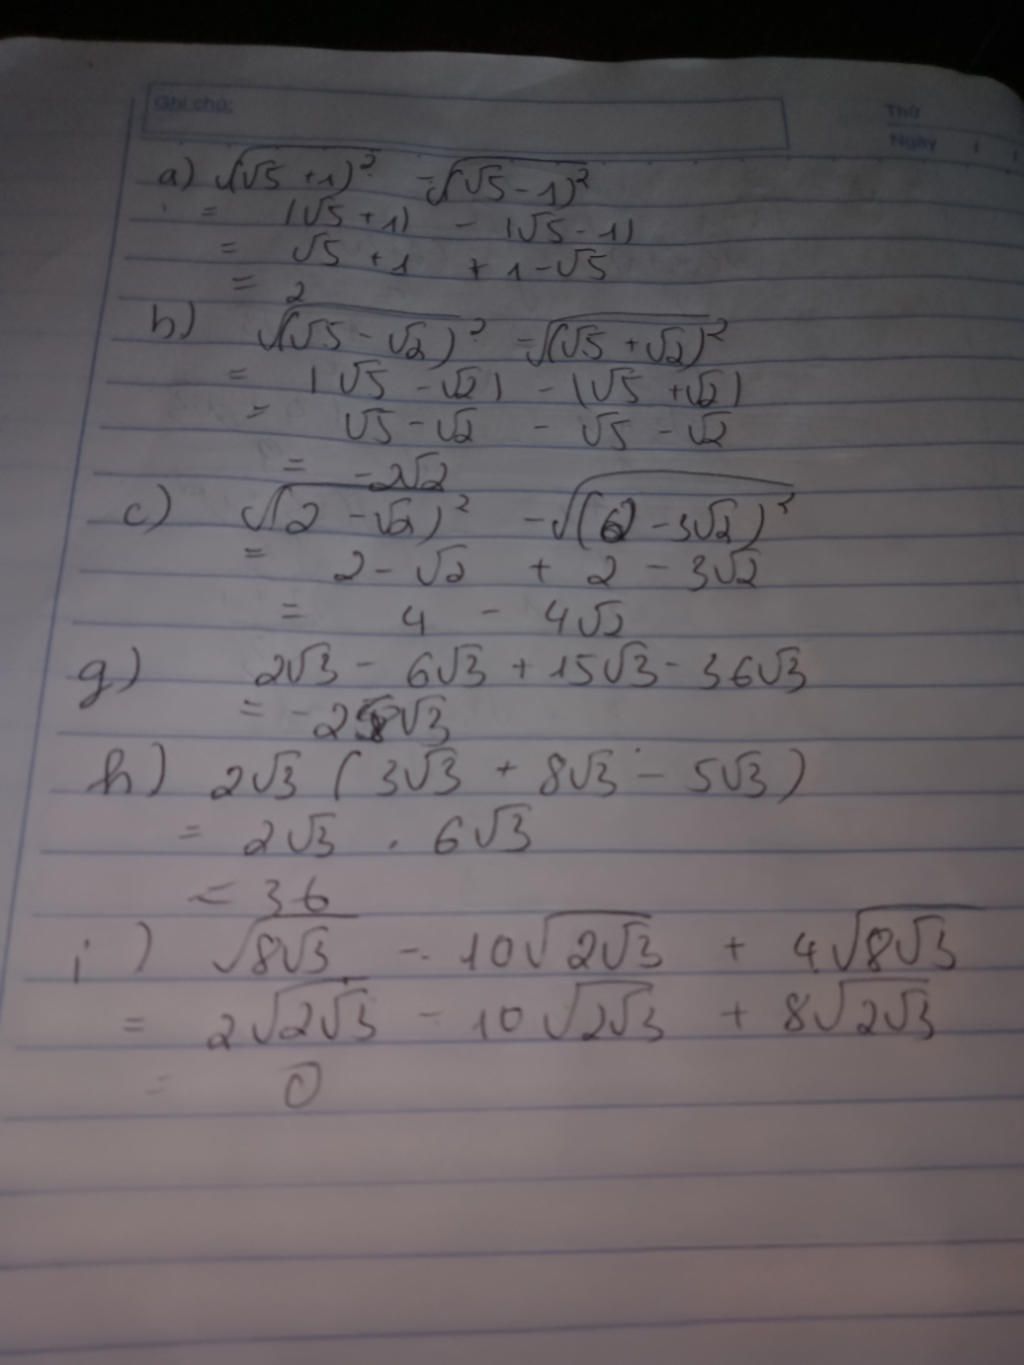 Ghi chú:
Thứ
Ngày
a) √(√5 + 1)² - √(√5 - 1)²
= |√5 + 1| - |√5 - 1|
= √5 + 1 + 1 - √5
= 2
b) √(√5 - √2)² - √(√5 + √2)²
= |√5 - √2| - |√5 + √2|
= √5 - √2 - √5 - √2
= -2√2
c) √(2 - √2)² - √( - 3√2)²
= 2 - √2 + 2 - 3√2
= 4 - 4√2
g) 2√3 - 6√3 + 15√3 - 36√3
= -2√3
h) 2√3 (3√3 + 8√3 - 5√3)
= 2√3 . 6√3
= 36
i) √8√3 - 10√2√3 + 4√8√3
= 2√2√3 - 10√2√3 + 8√2√3
= 0